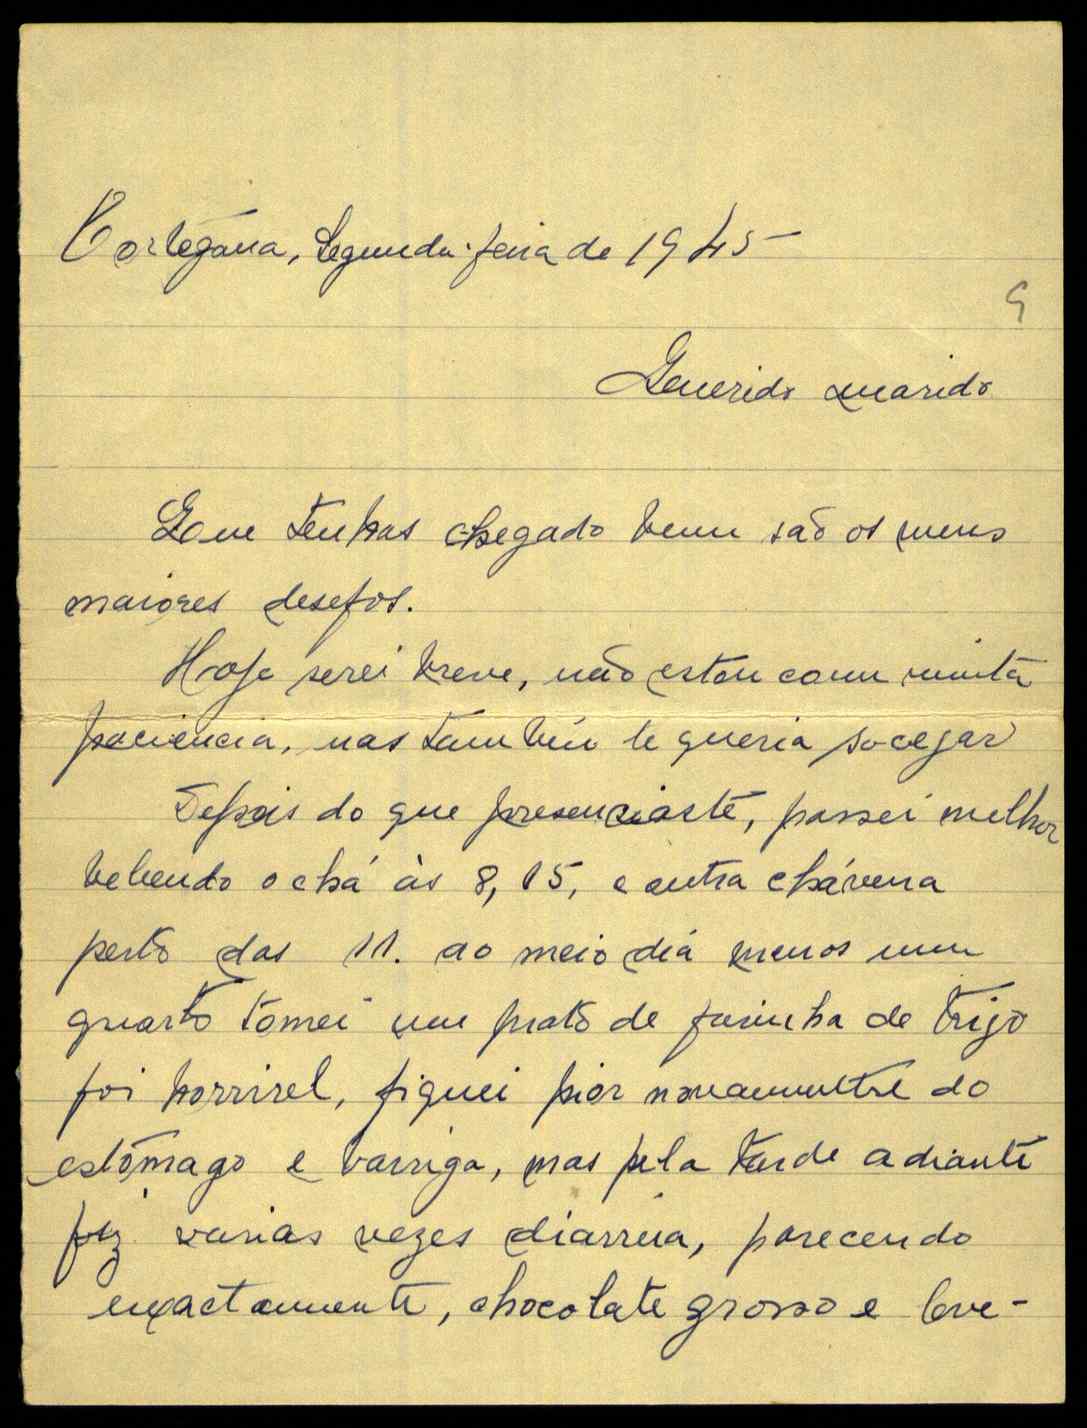 Cortegana, Segunda-feira de 1945
9
Querido marido
Que tenhas chegado bem são os meus
maiores desejos.
Hoje serei breve, não estou com muita
paciencia, mas tambem te queria socegar
Depois do que presenciaste, passei melhor
bebendo o chá às 8,15, e outra chávena
perto das 11. ao meio dia menos um
quarto tomei um prato de farinha de trigo
foi horrivel, fiquei pior novamente do
estômago e barriga, mas pela tarde adiante
fiz varias vezes diarreia, parecendo
exactamente, chocolate grosso e leve-